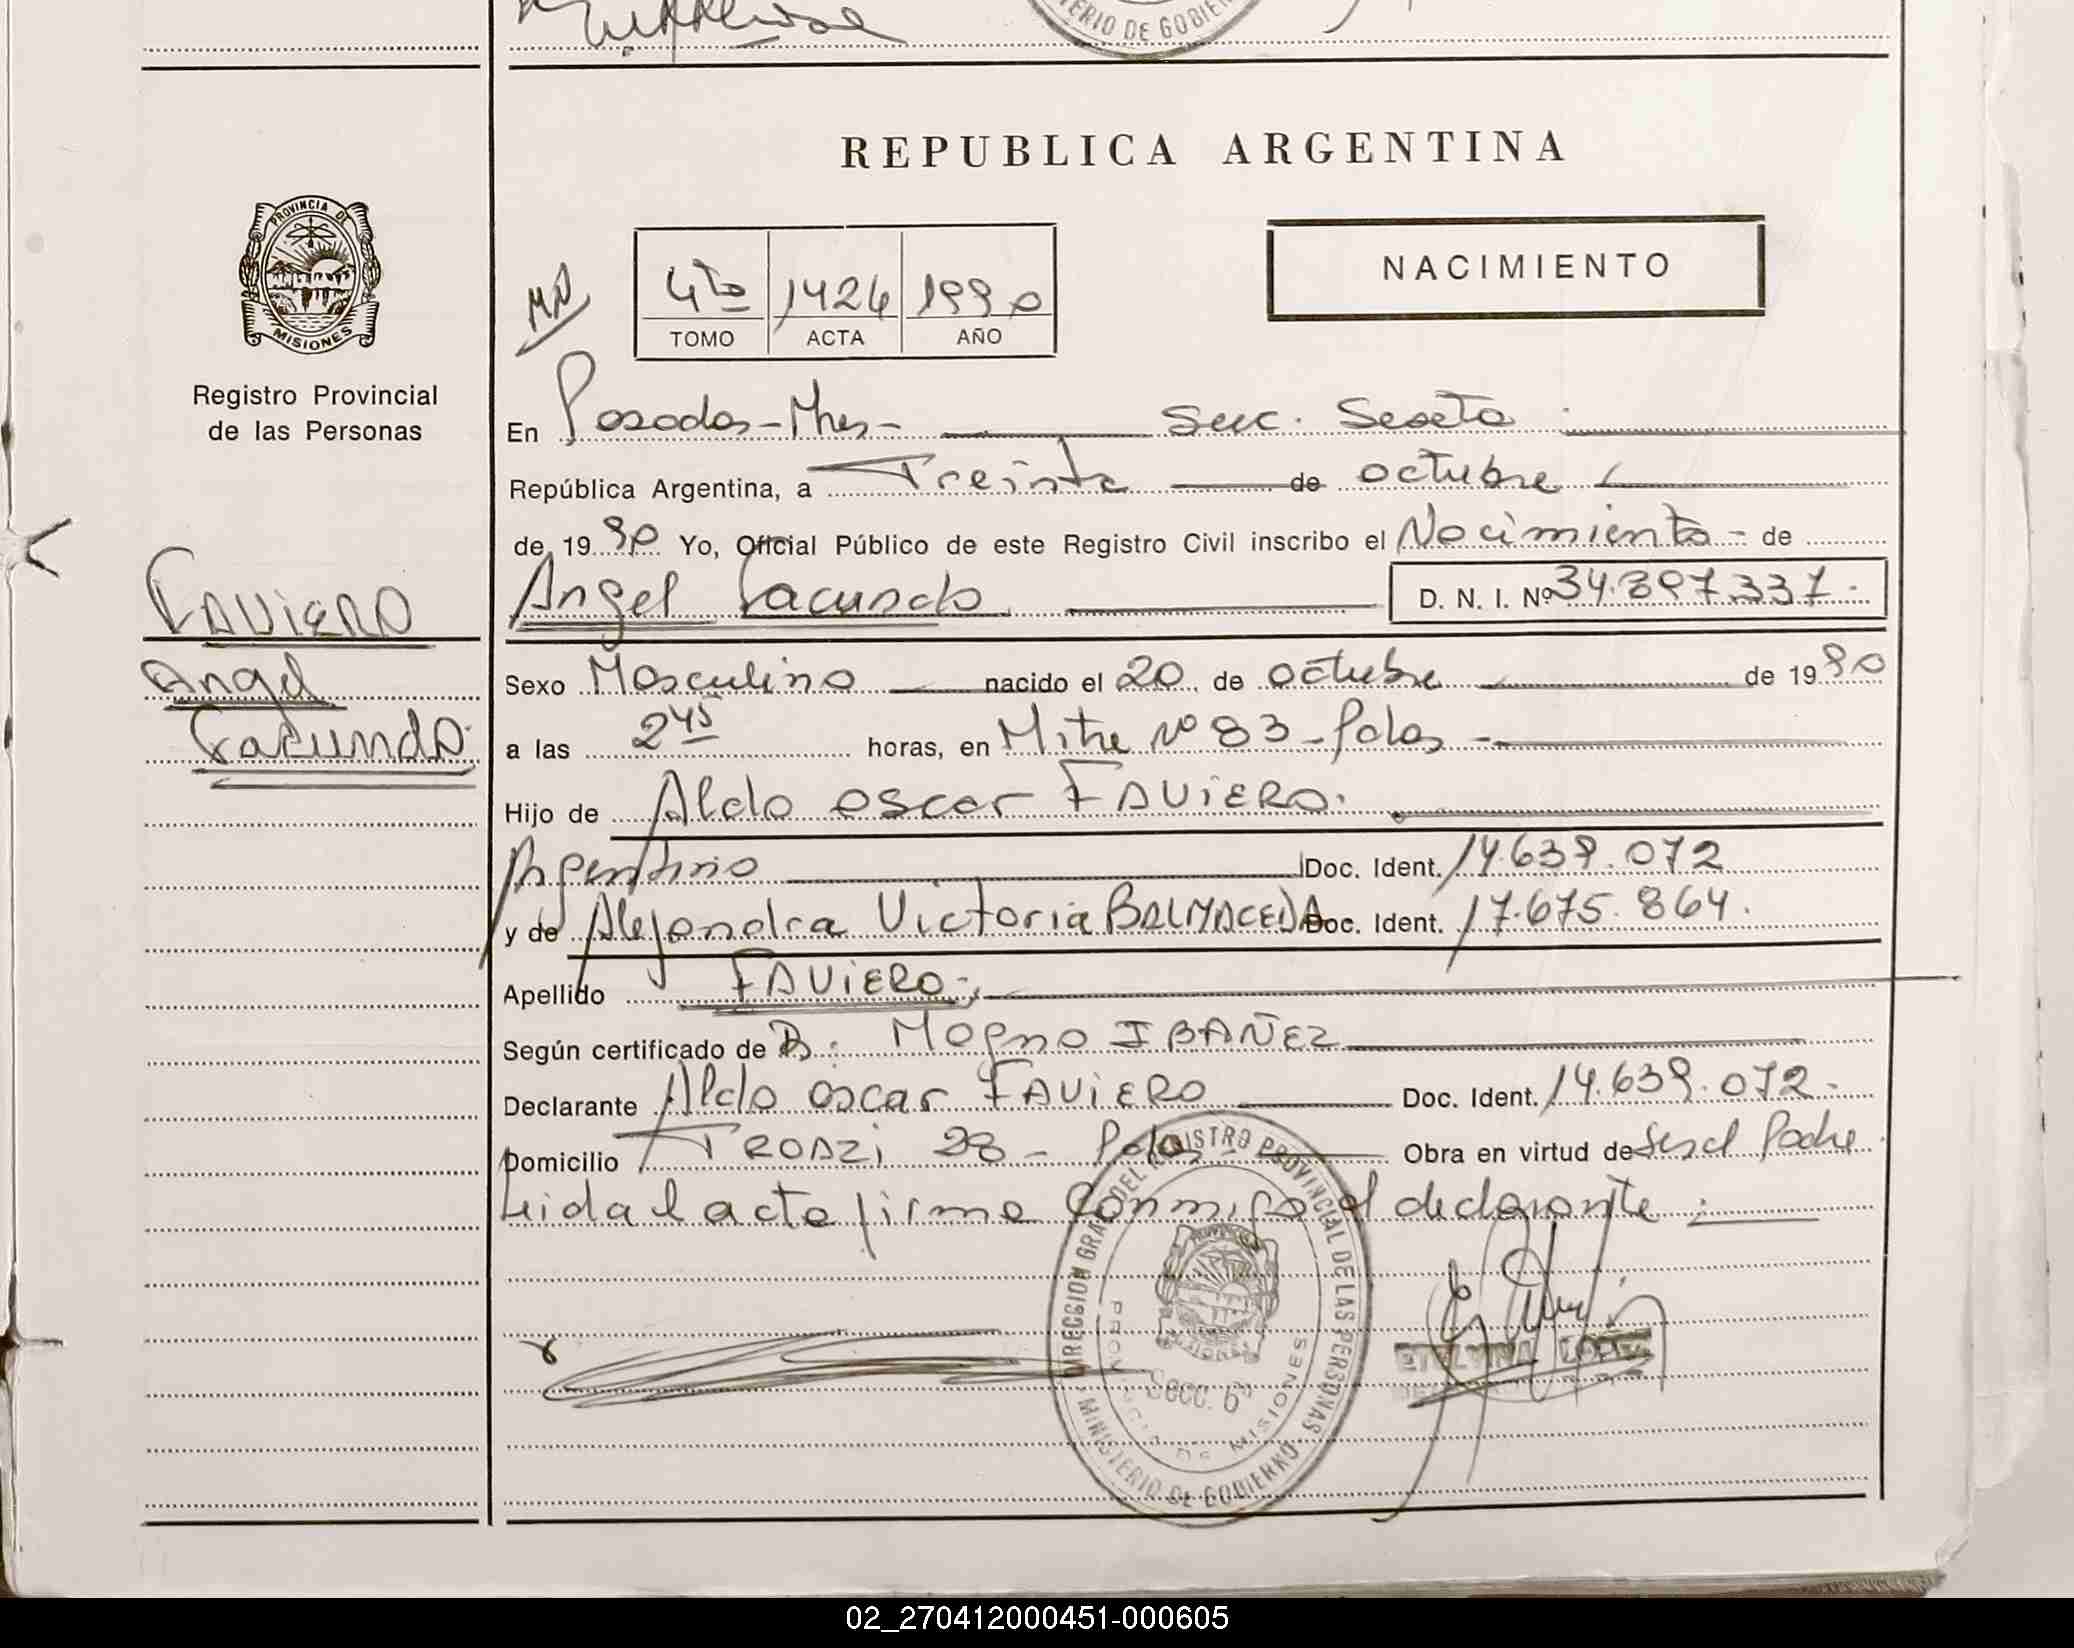 MINISTERIO DE GOBIERNO
REPUBLICA ARGENTINA
PROVINCIA DE
MISIONES
Registro Provincial
de las Personas
NACIMIENTO
4to 1424 1990
TOMO ACTA AÑO
En Posadas-Mnes- Secc. Sexta
República Argentina, a Treinta de octubre
de 1990 Yo, Oficial Público de este Registro Civil inscribo el Nacimiento - de
Angel Facundo D. N. I. Nº 34.397.337.
FAVIERO
Angel
Facundo.
Sexo Masculino nacido el 20 de octubre de 1990
a las 2 45 horas, en Mitre Nº 83 - Pdas -
Hijo de Aldo oscar FAVIERO.
Argentino Doc. Ident. 14.639.072
y de Alejandra Victoria BALMACEDA Doc. Ident. 17.675.864.
Apellido FAVIERO.
Según certificado de Magno IBAÑEZ
Declarante Aldo oscar FAVIERO Doc. Ident. 14.639.072-
Domicilio TROAZI 28 - Pdas Obra en virtud de ser el Padre.
Leida el acta firma conmigo el declarante
DIRECCION GRAL DEL REGISTRO PROVINCIAL DE LAS PERSONAS
MINISTERIO DE GOBIERNO
PROVINCIA DE MISIONES
Secc. 6a
ETELVINA LOPEZ
02_270412000451-000605